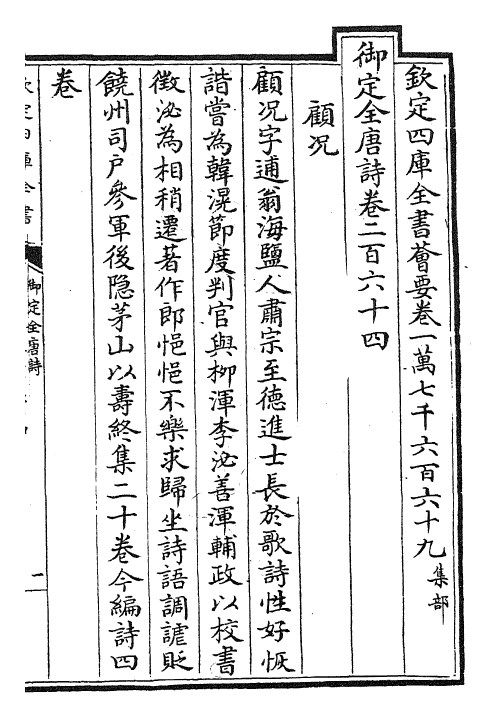 欽定四庫全書薈要卷一萬七千六百六十九集部
御定全唐詩卷二百六十四
顧况
顧况字逋翁海鹽人肅宗至德進士長於歌詩性好恢
諧嘗為韓滉節度判官與柳渾李泌善渾輔政以校書
徵泌為相稍遷著作郎悒悒不樂求歸坐詩語調謔貶
饒州司戶參軍後隐茅山以壽終集二十卷今編詩四
卷
御定全唐詩
二